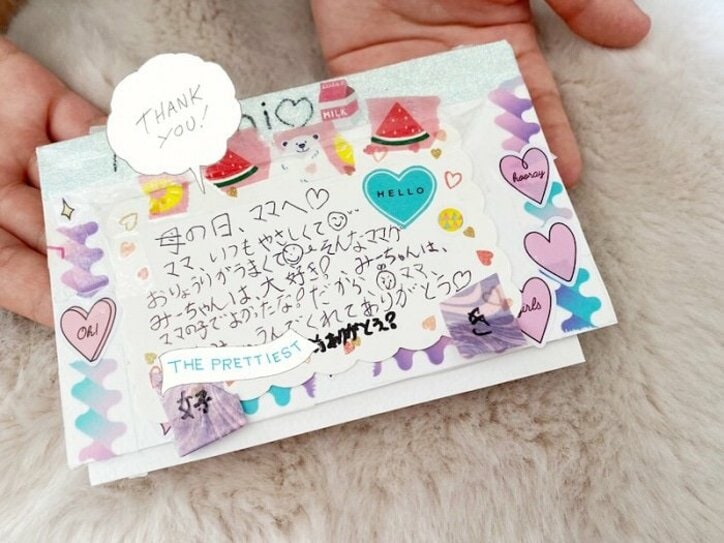 THANK
YOU!
ni♡
MILK
HELLO
hooray
母の日、ママへ♡
ママ、いつもやさしくて
おりょうりがうまくて そんなママが
みーちゃんは、大好き! みーちゃんは、
ママの子でよかったな! だから、ママ、
うんでくれてありがとう♡
ありがとう?
Oh!
THE PRETTIEST
girls
好
き